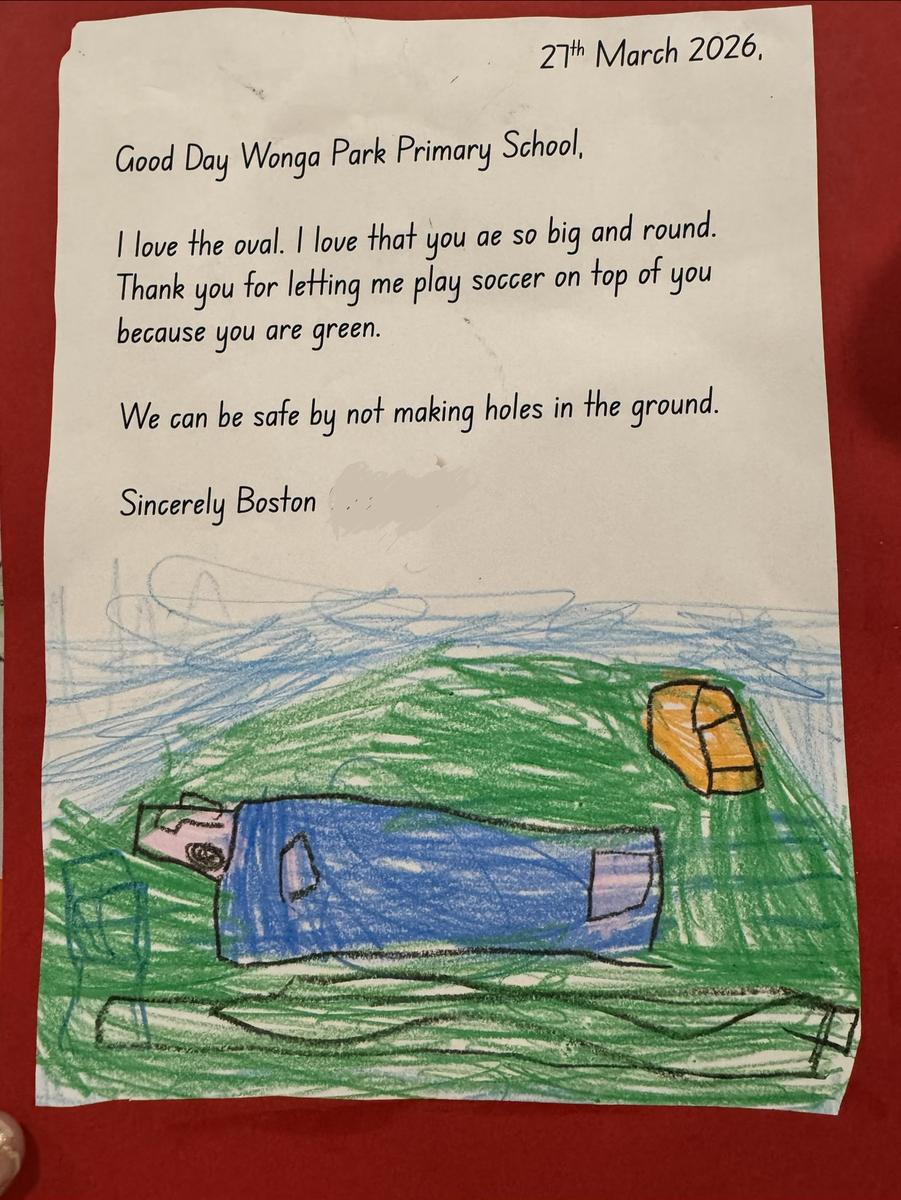 27th March 2026,
Good Day Wonga Park Primary School,
I love the oval. I love that you ae so big and round.
Thank you for letting me play soccer on top of you
because you are green.
We can be safe by not making holes in the ground.
Sincerely Boston